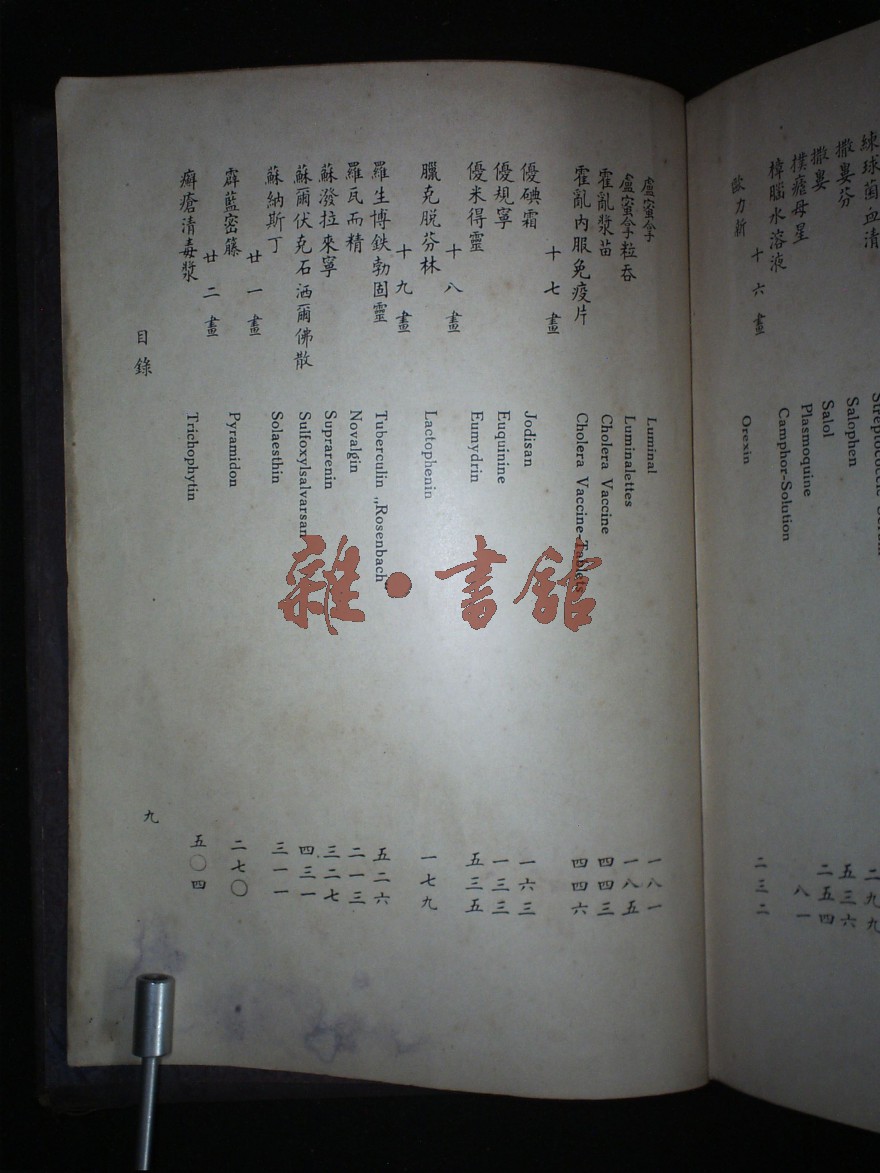 練球菌血清
撒婁芬 Salophen 五三六
撒婁 Salol 二五四
撲瘧母星 Plasmoquine 八一
樟腦水溶液 Camphor-Solution
十六畫
歐力新 Orexin 二三二
盧蜜拿 Luminal 一八一
盧蜜拿粒吞 Luminalettes 一八五
霍亂漿苗 Cholera Vaccine 四四三
霍亂內服免疫片 Cholera Vaccine-Tablets 四四六
十七畫
優碘霜 Jodisan 一六三
優規寧 Euquinine 一三三
優米得靈 Eumydrin 五三五
十八畫
臘克脱芬林 Lactophenin 一七九
十九畫
羅生博鉄勃固靈 Tuberculin „Rosenbach“ 五二六
羅瓦而精 Novalgin 二一三
蘇潑拉來寧 Suprarenin 三二七
蘇爾伏克石洒爾佛散 Sulfoxylsalvarsan 四三一
蘇納斯丁 Solaesthin 三一一
廿一畫
霹藍密籐 Pyramidon 二七〇
廿二畫
癬瘡清毒漿 Trichophytin 五〇四
目錄
九
雜·書館